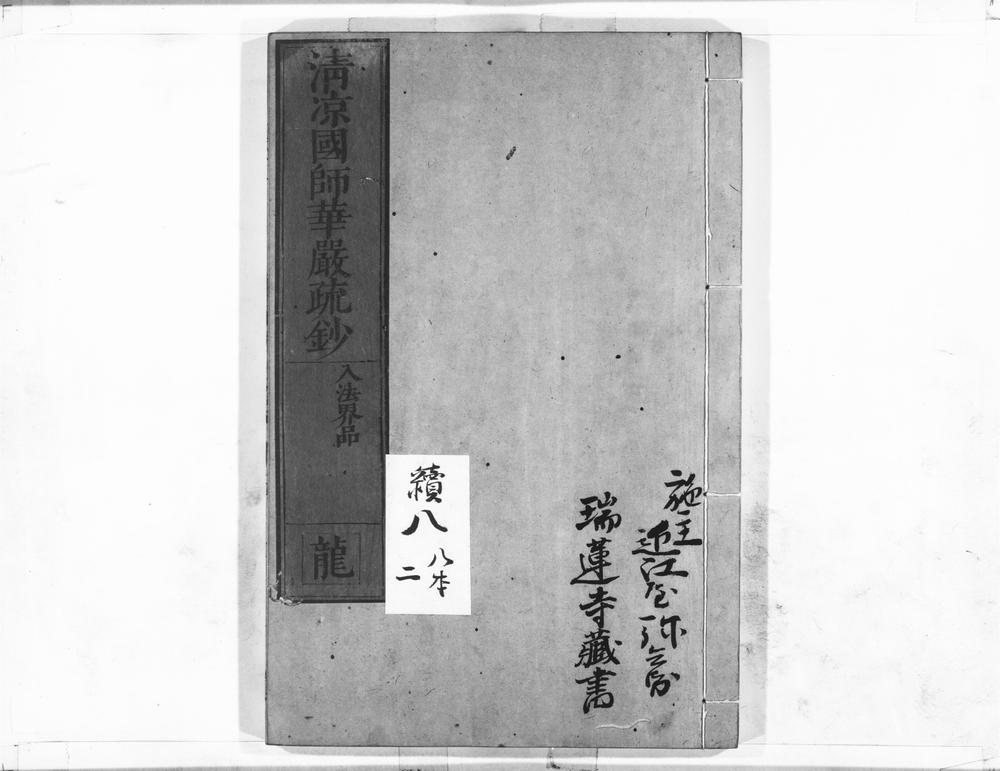 施主
近江屋弥兵衛
瑞蓮寺藏書
清凉國師華嚴疏鈔
入法界品
龍
續八
八本
二